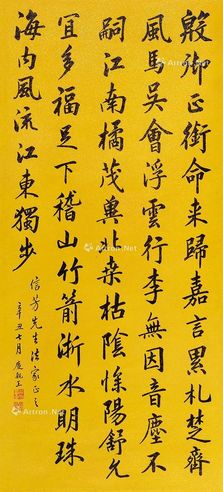 殷御正銜命来歸嘉言累札楚齊
風馬吳會浮雲行李無因音塵不
嗣江南橘茂冀北桑枯陰惨陽舒允
宜多福足下稽山竹箭浙水明珠
海内風流江東獨步
信芳先生法家正之
辛丑七月
Artron.Net